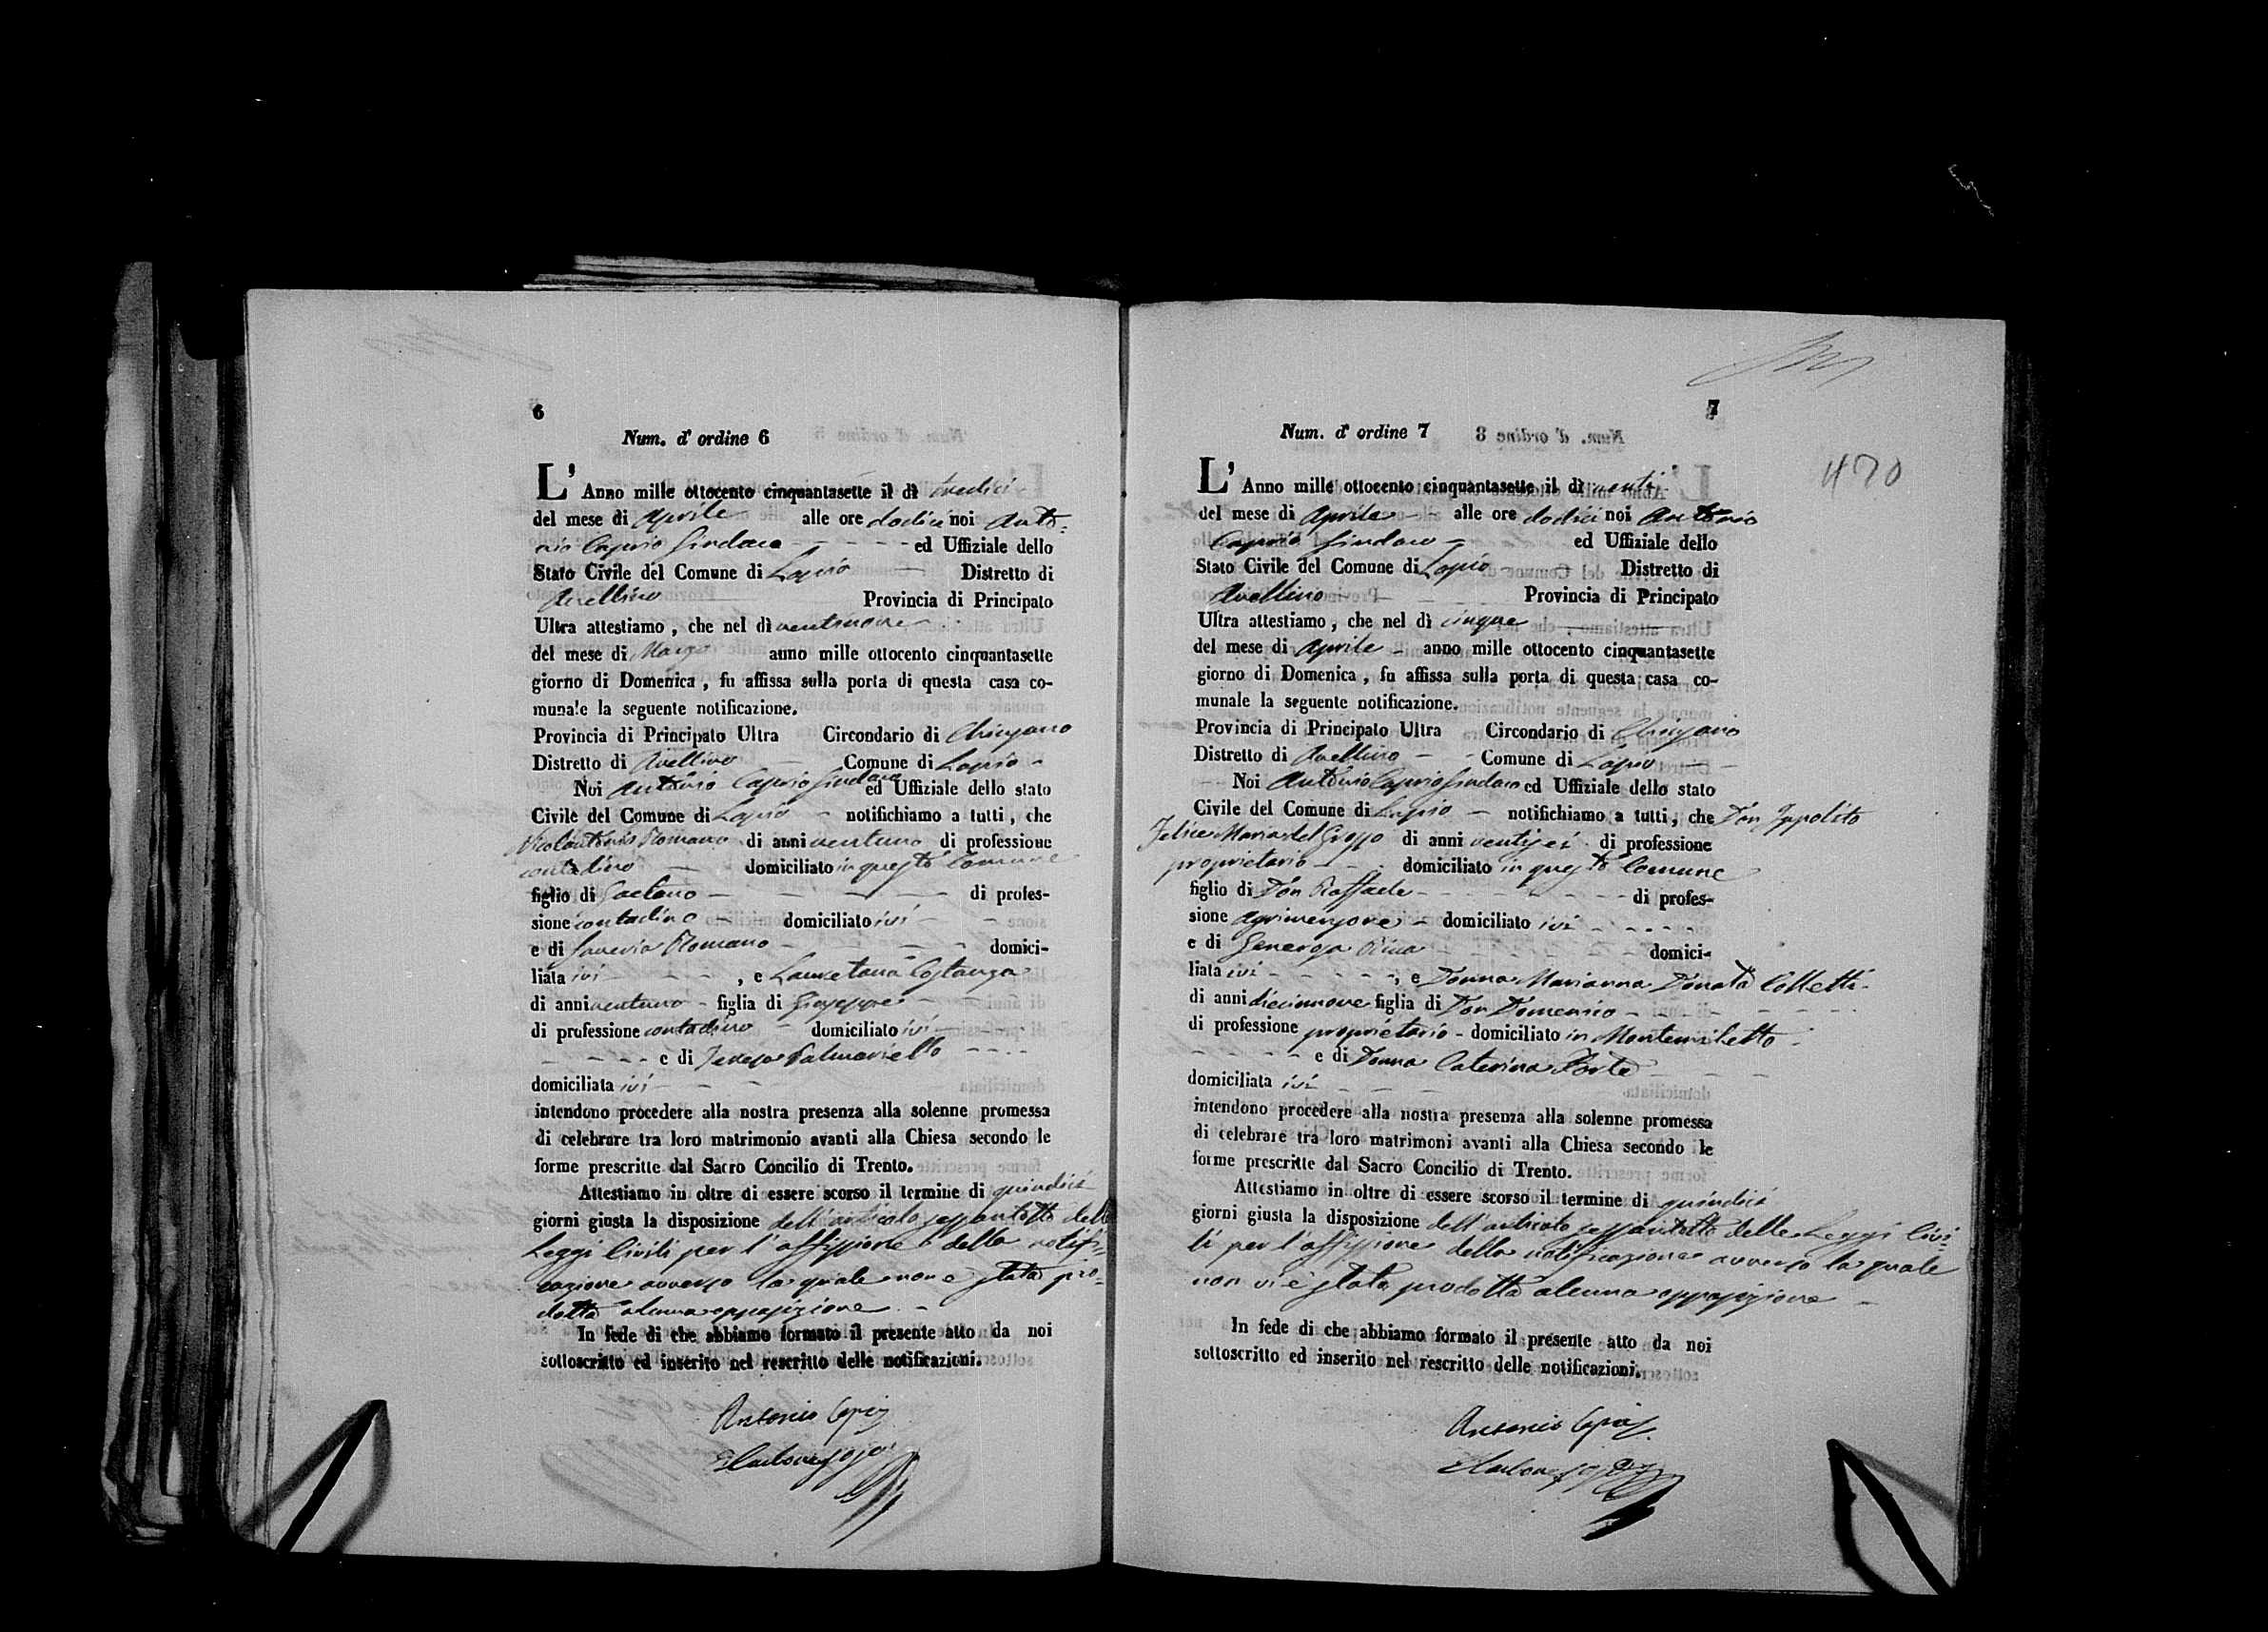 6
Num. d' ordine 6
L' Anno mille ottocento cinquantasette il dì tredici
del mese di Aprile alle ore dodici noi Anto-
nio Caprio Sindaco ed Uffiziale dello
Stato Civile del Comune di Lapio Distretto di
Avellino Provincia di Principato
Ultra attestiamo, che nel dì ventinove
del mese di Marzo anno mille ottocento cinquantasette
giorno di Domenica, fu affissa sulla porta di questa casa co-
munale la seguente notificazione.
Provincia di Principato Ultra Circondario di Chiusano
Distretto di Avellino Comune di Lapio
Noi Antonio Caprio Sindaco ed Uffiziale dello stato
Civile del Comune di Lapio notifichiamo a tutti, che
Nicolantonio Romano di anni ventuno di professione
contadino domiciliato in questo Comune
figlio di Gaetano di profes-
sione contadino domiciliato ivi
e di Saveria Romano domici-
liata ivi, e Lauretana Costanza
di anni ventuno figlia di Giuseppe
di professione contadino domiciliato ivi
e di Teresa Palmariello
domiciliata ivi
intendono procedere alla nostra presenza alla solenne promessa
di celebrare tra loro matrimonio avanti alla Chiesa secondo le
forme prescritte dal Sacro Concilio di Trento.
Attestiamo in oltre di essere scorso il termine di quindici
giorni giusta la disposizione dell'articolo sessantotto delle
Leggi Civili per l'affissione della notifi-
cazione avverso la quale non è stata pro-
dotta alcuna opposizione
In fede di che abbiamo formato il presente atto da noi
sottoscritto ed inserito nel rescritto delle notificazioni.
Antonio Caprio
7
Num. d' ordine 7
470
L' Anno mille ottocento cinquantasette il dì venti
del mese di Aprile alle ore dodici noi Antonio
Caprio Sindaco ed Uffiziale dello
Stato Civile del Comune di Lapio Distretto di
Avellino Provincia di Principato
Ultra attestiamo, che nel dì cinque
del mese di Aprile anno mille ottocento cinquantasette
giorno di Domenica, fu affissa sulla porta di questa casa co-
munale la seguente notificazione.
Provincia di Principato Ultra Circondario di Chiusano
Distretto di Avellino Comune di Lapio
Noi Antonio Caprio Sindaco ed Uffiziale dello stato
Civile del Comune di Lapio notifichiamo a tutti, che Don Ippolito
Felice Maria del Grosso di anni ventisei di professione
proprietario domiciliato in questo Comune
figlio di Don Raffaele di profes-
sione agrimensore domiciliato ivi
e di Generosa domici-
liata ivi, e Donna Marianna Donata Colletti
di anni diecinnove figlia di Don Domenico
di professione proprietario domiciliato in Montemiletto
e di Donna Caterina Forte
domiciliata ivi
intendono procedere alla nostra presenza alla solenne promessa
di celebrare tra loro matrimoni avanti alla Chiesa secondo le
forme prescritte dal Sacro Concilio di Trento.
Attestiamo in oltre di essere scorso il termine di quindici
giorni giusta la disposizione dell'articolo sessantotto delle Leggi Civi-
li per l'affissione della notificazione avverso la quale
non vi è stata prodotta alcuna opposizione
In fede di che abbiamo formato il presente atto da noi
sottoscritto ed inserito nel rescritto delle notificazioni.
Antonio Caprio